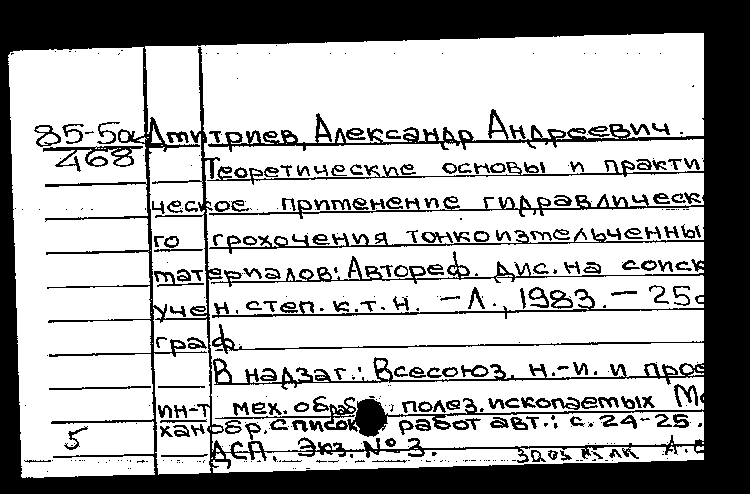 85-5ок Дмитриев, Александр Андреевич.
468 Теоретические основы и практи
ческое применение гидравлическ
го грохочения тонкоизмельченны
материалов: Автореф. дис. на соиск
учен. степ. к.т.н. – Л., 1983. – 25с
граф.
В надзаг.: Всесоюз. н.-и. и прое
ин-т мех. обраб. полез. ископаемых Ме
ханобр. Список работ авт.: с. 24-25.
5 ДСП. Экз. № 3.